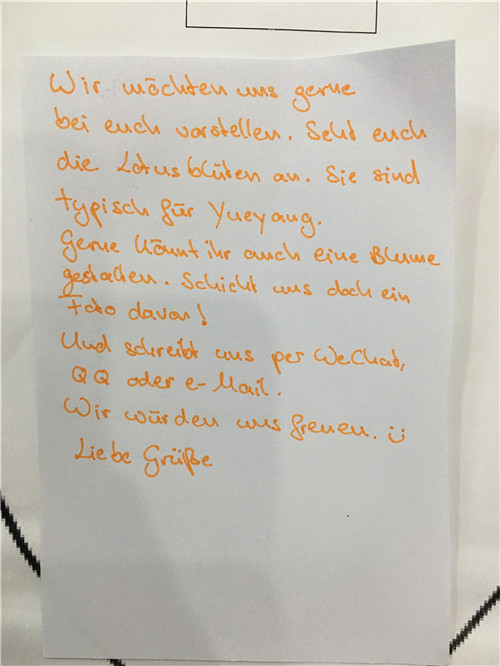 Wir möchten uns gerne
bei euch vorstellen. Seht euch
die Lotusblüten an. Sie sind
typisch für Yueyang.
Gerne könnt ihr auch eine Blume
gestalten. Schickt uns doch ein
Foto davon!
Und schreibt uns per WeChat,
QQ oder e-Mail.
Wir würden uns freuen. :)
Liebe Grüße